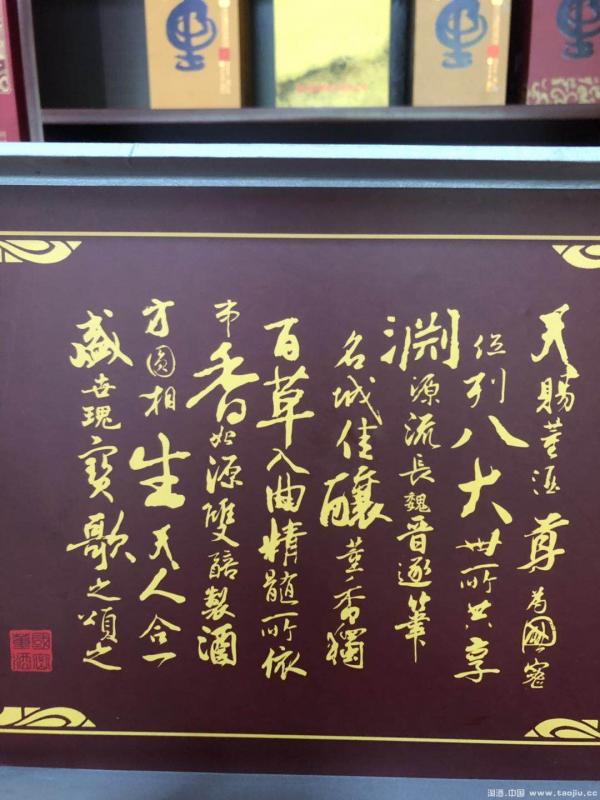 天賜董酒尊为國密
位列八大世所共享
渊源流長魏晋逐筆
名城佳釀董香獨
百草入曲精髓所依
香如源雙醅製酒
方圆相生天人合一
盛世瑰寶歌之頌之
國密董酒
淘酒.中国
www.taojiu.cc